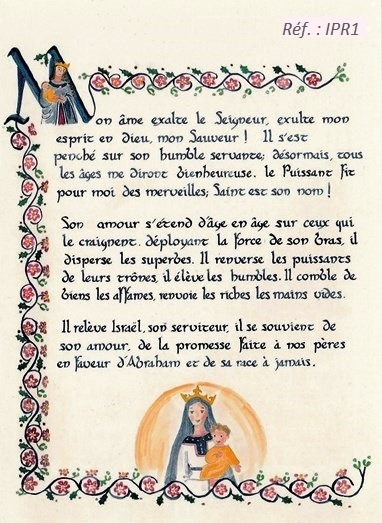 Réf. : IPR1
Mon âme exalte le Seigneur, exulte mon
esprit en Dieu, mon Sauveur ! Il s'est
penché sur son humble servante; désormais, tous
les âges me diront bienheureuse. le Puissant fit
pour moi des merveilles; Saint est son nom !
Son amour s'étend d'âge en âge sur ceux qui
le craignent. déployant la force de son bras, il
disperse les superbes. Il renverse les puissants
de leurs trônes, il élève les humbles. Il comble de
biens les affamés, renvoie les riches les mains vides.
Il relève Israël, son serviteur, il se souvient de
son amour, de la promesse faite à nos pères
en faveur d'Abraham et de sa race à jamais.